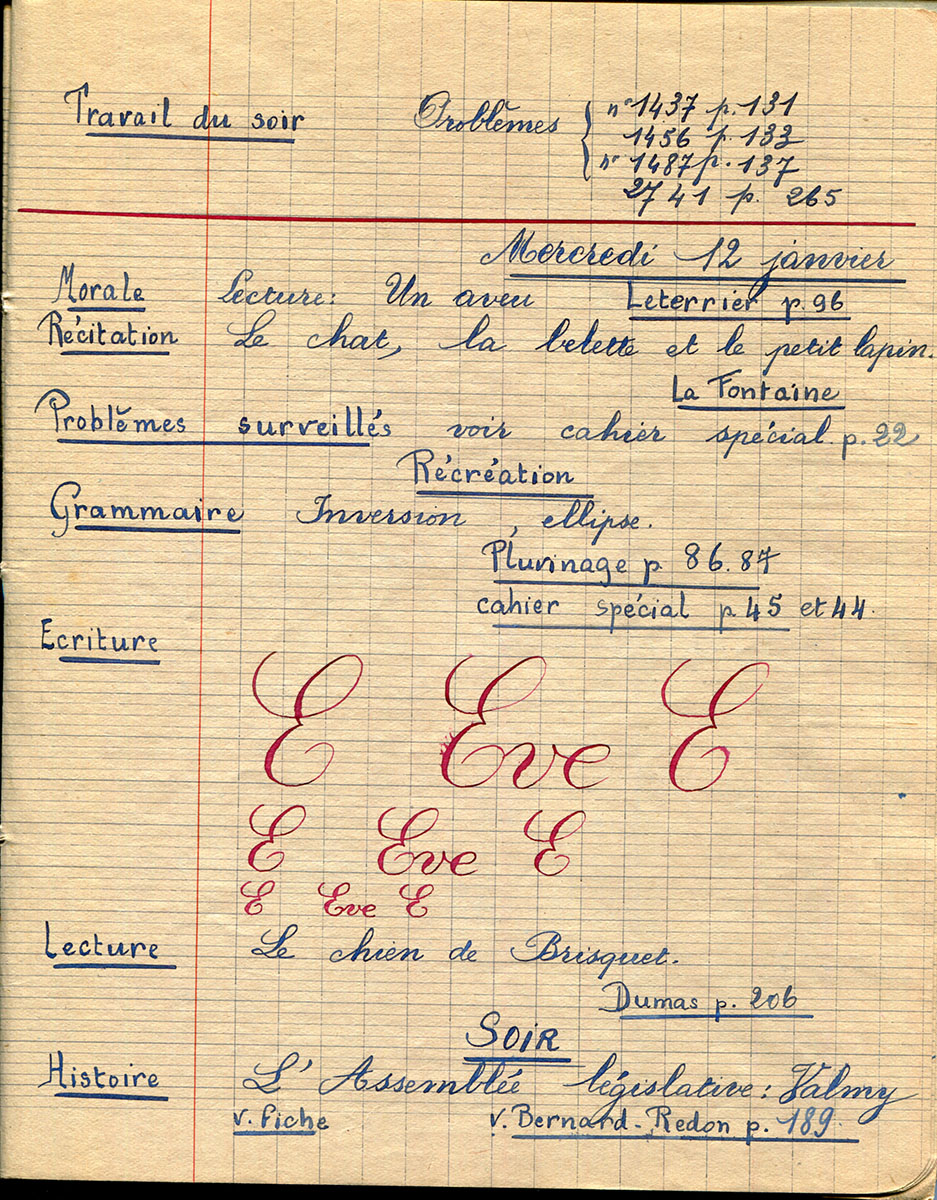 Travail du soir Problèmes { n° 1437 p. 131
1456 p. 133
n° 1487 p. 137
2741 p. 265
Mercredi 12 janvier
Morale Lecture: Un aveu Leterrier p. 96
Récitation Le chat, la belette et le petit lapin.
La Fontaine
Problèmes surveillés voir cahier spécial p. 22
Récréation
Grammaire Inversion, ellipse.
Plurinage p 86. 87
cahier spécial p 45 et 44.
Ecriture
E Eve E
E Eve E
E Eve E
Lecture Le chien de Brisquet.
Dumas p. 206
SOIR
Histoire L'Assemblée législative: Valmy
v. Fiche v. Bernard-Redon p. 189